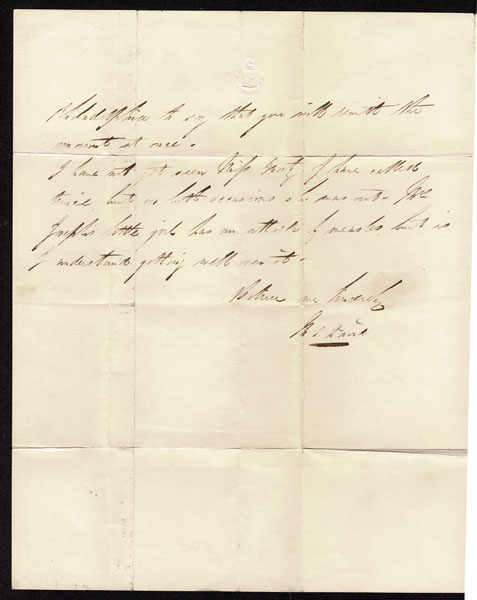 Philadelphia to say that you will remit the
amount at once.
I have not yet seen Miss I have called
twice but on both occasions she was out. Mr
Josephs little girl has an attack of measles but is
I understand getting well over it.
Believe me Sincerely
David